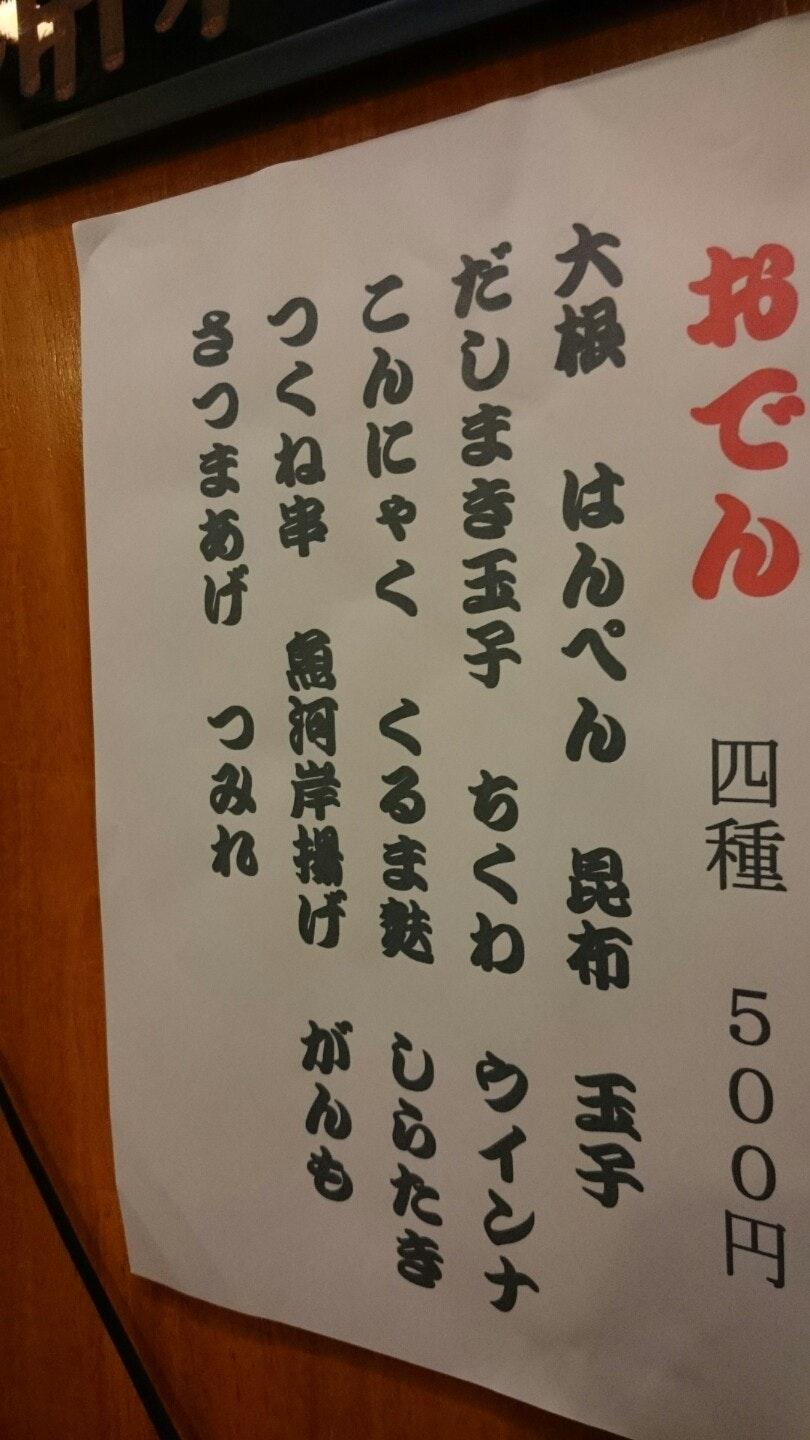 おでん 四種 500円
大根 はんぺん 昆布 玉子
だしまき玉子 ちくわ ウインナ
こんにゃく くるま麩 しらたき
つくね串 魚河岸揚げ がんも
さつまあげ つみれ